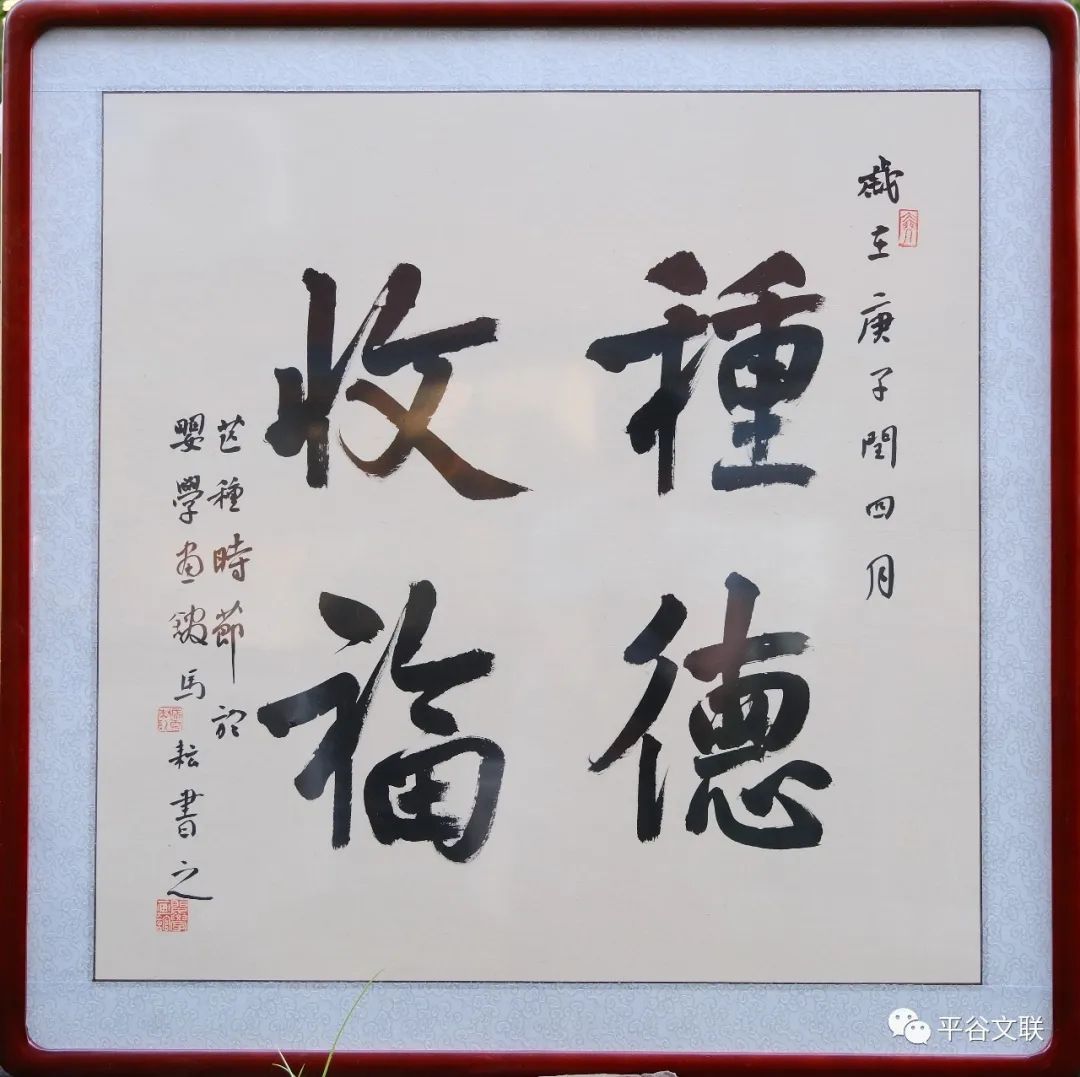 歲在庚子閏四月
種德
收福
芒種時節於
嬰學畫館馬耘書之
平谷文联